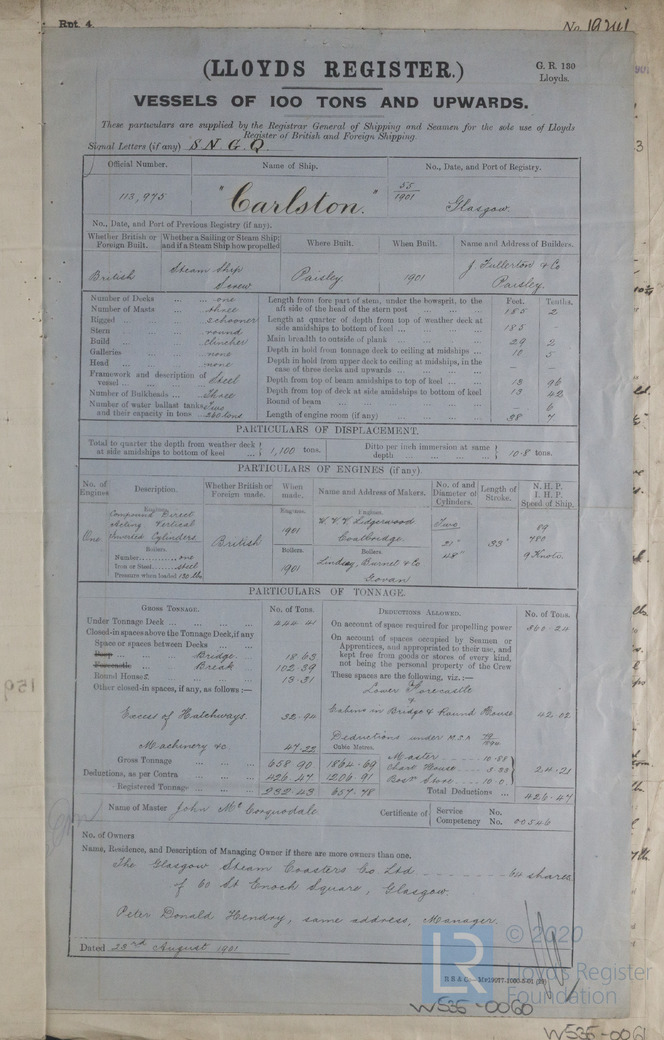 Rpt. 4.
No. 19241
(LLOYDS REGISTER.)
G. R. 130
Lloyds.
VESSELS OF 100 TONS AND UPWARDS.
These particulars are supplied by the Registrar General of Shipping and Seamen for the sole use of Lloyds
Register of British and Foreign Shipping.
Signal Letters (if any) S. N. G. Q.
Official Number. Name of Ship. No., Date, and Port of Registry.
113,975 "Carlston." 55/1901 Glasgow.
No., Date, and Port of Previous Registry (if any).
Whether British or Foreign Built. Whether a Sailing or Steam Ship; and if a Steam Ship how propelled Where Built. When Built. Name and Address of Builders.
British Steam Ship Screw Paisley. 1901 J. Fullerton & Co Paisley.
Feet. Tenths.
Number of Decks one
Number of Masts three
Rigged schooner
Stern round
Build clincher
Galleries none
Head none
Framework and description of vessel Steel
Number of Bulkheads Three
Number of water ballast tanks Two
and their capacity in tons 260 tons
Length from fore part of stem, under the bowsprit, to the aft side of the head of the stern post 185 2
Length at quarter of depth from top of weather deck at side amidships to bottom of keel 185 -
Main breadth to outside of plank 29 2
Depth in hold from tonnage deck to ceiling at midships 10 5
Depth in hold from upper deck to ceiling at midships, in the case of three decks and upwards - -
Depth from top of beam amidships to top of keel 12 96
Depth from top of deck at side amidships to bottom of keel 13 42
Round of beam - 6
Length of engine room (if any) 38 7
PARTICULARS OF DISPLACEMENT.
Total to quarter the depth from weather deck at side amidships to bottom of keel 1,100 tons.
Ditto per inch immersion at same depth 10.8 tons.
PARTICULARS OF ENGINES (if any).
No. of Engines Description. Whether British or Foreign made. When made. Name and Address of Makers. No. of and Diameter of Cylinders. Length of Stroke. N. H. P. I. H. P. Speed of Ship.
One
Engines.
Compound Direct
Acting Vertical
Inverted Cylinders
Boilers.
Number one
Iron or Steel steel
Pressure when loaded 130 lbs
British
Engines.
1901
Boilers.
1901
Engines.
Coatbridge.
Boilers.
Lindsay, Burnet & Co
Govan
Two
21"
48"
33"
89
780
9 Knots
PARTICULARS OF TONNAGE.
GROSS TONNAGE. No. of Tons.
Under Tonnage Deck 444.41
Closed-in spaces above the Tonnage Deck, if any
Space or spaces between Decks
Poop Bridge 18.63
Forecastle Break 102.39
Round Houses 13.31
Other closed-in spaces, if any, as follows:—
Excess of Hatchways 32.94
Machinery &c 47.22
Gross Tonnage 658.90 1864.69
Deductions, as per Contra 426.47 1206.91
Registered Tonnage 232.43 657.78
Cubic Metres.
DEDUCTIONS ALLOWED. No. of Tons.
On account of space required for propelling power 360.24
On account of spaces occupied by Seamen or Apprentices, and appropriated to their use, and kept free from goods or stores of every kind, not being the personal property of the Crew
These spaces are the following, viz.:—
Lower Forecastle
&
Cabins in Bridge & Round House 42.02
Deductions under M.S.A.
Master 10.88
Chart House 3.33
Boat Store 10.0
24.21
Total Deductions 426.47
Name of Master John Mc Corquodale
Certificate of Service No.
Competency No. 00546
No. of Owners
Name, Residence, and Description of Managing Owner if there are more owners than one.
The Glasgow Steam Coasters Co. Ltd 64 shares
of 60 St Enoch Square, Glasgow.
Peter Donald Hendry, same address, Manager.
Dated 23rd August 1901
© 2020
Lloyd's Register
Foundation
LR
W535-0060
W535-0061
159